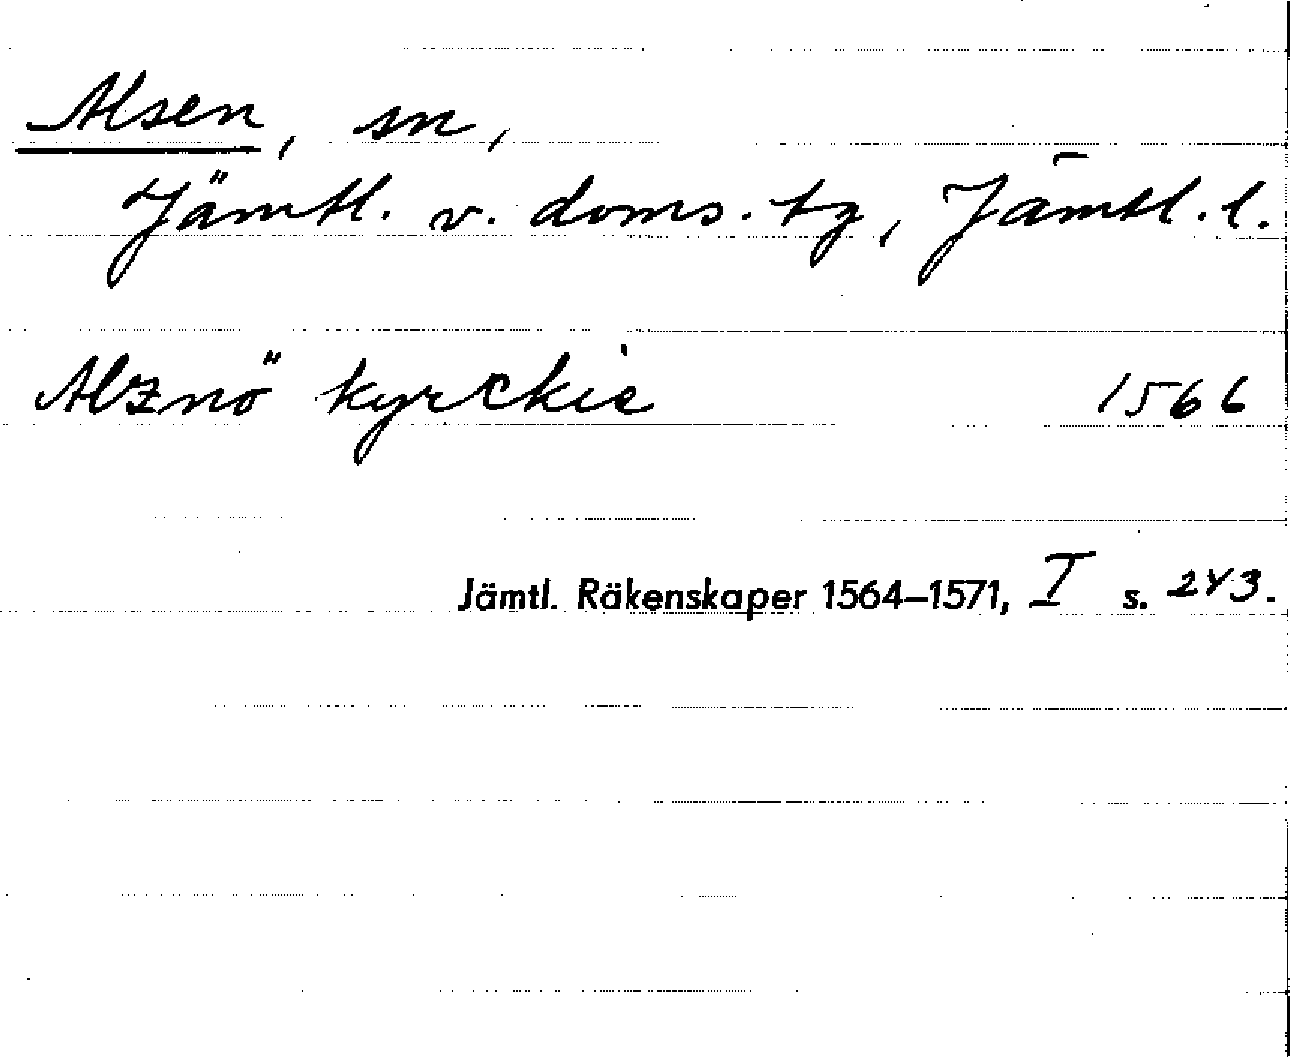 Alsen, sn,
Jämtl. v. doms. tg, Jämtl. l.
Alznö kyrckie 1566
Jämtl. Räkenskaper 1564–1571, I s. 243.